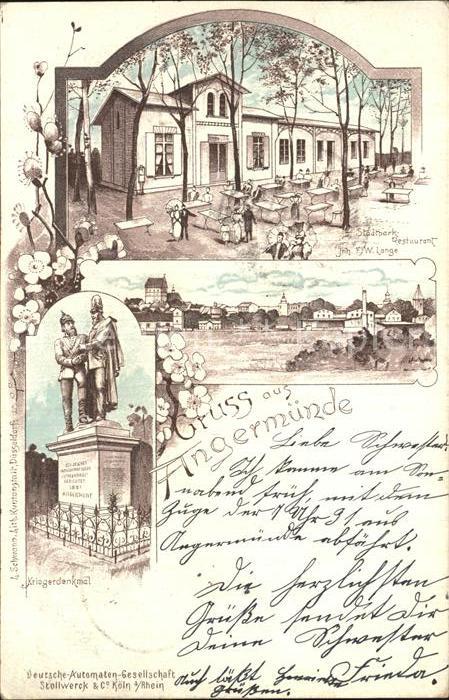 Stadtpark-
Restaurant
Inh. F. W. Lange
Gruss aus
Angermünde
Kriegerdenkmal
L. Schwann, Lith. Kunstanstalt, Düsseldorf
Liebe Schwester.
Ich komme am Son-
nabend früh, mit dem
Zuge der 7 Uhr 31 aus
Angermünde abfährt.
Die herzlichsten
Grüße sendet Dir
Deine Schwester
Frieda.
Auch läßt
grüßen.
Deutsche-Automaten-Gesellschaft
Stollwerck & Co Köln a/Rhein